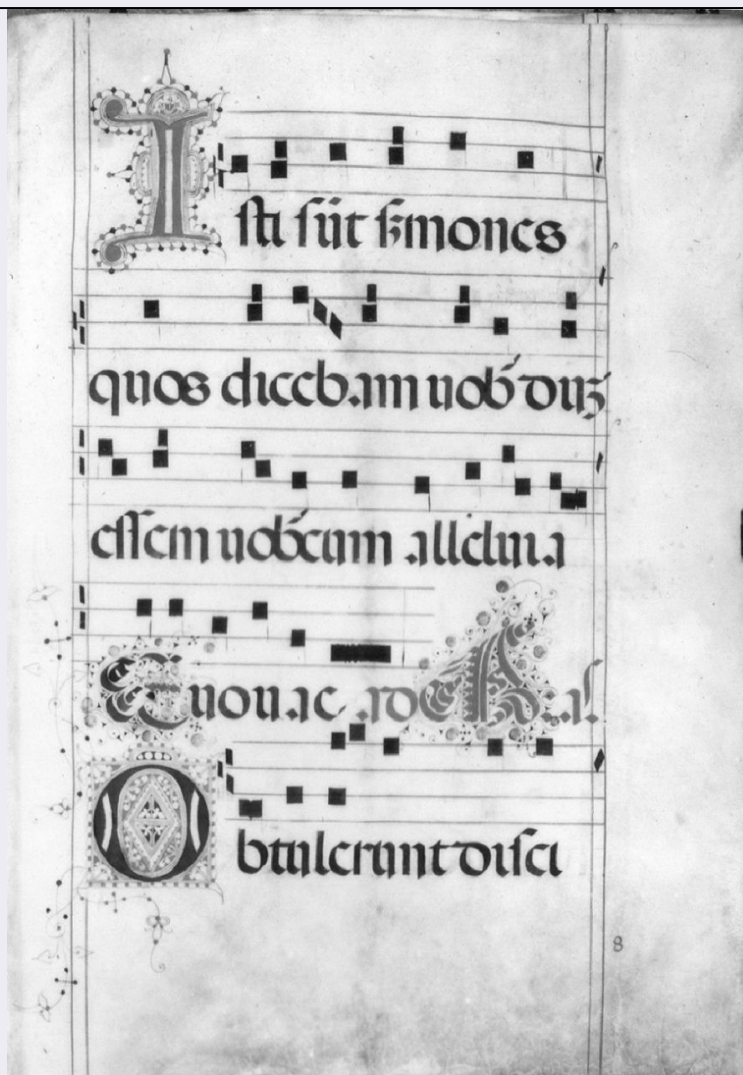 Isti sūt ẜmones
quos dicebam uob̄ duꝫ
essem uob̄cum alleluia
Euouae ad
Obtulerunt disci
8